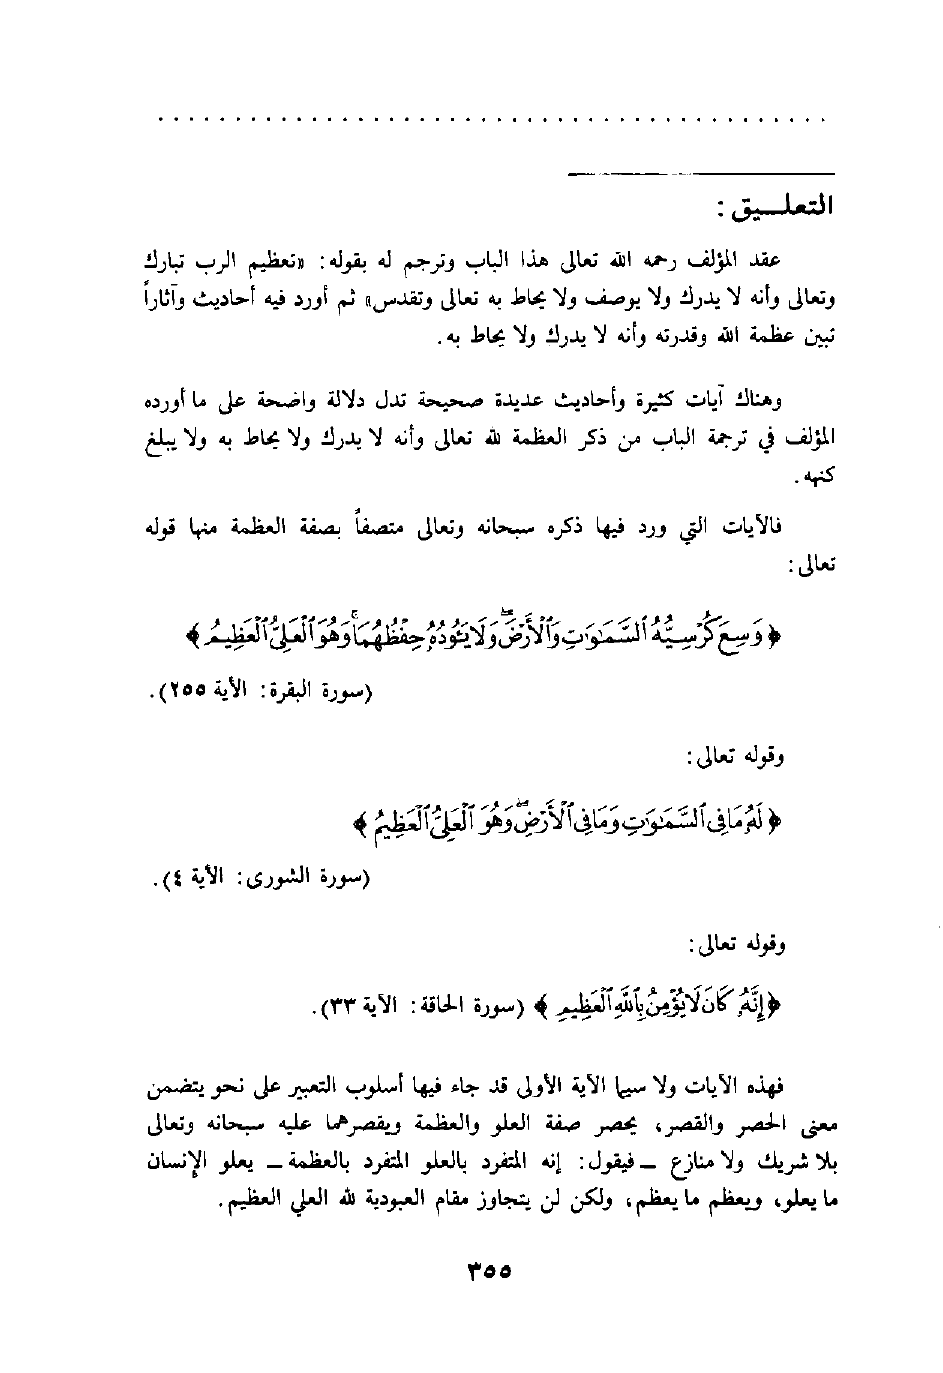 التعليق :
عقد المؤلف رحمه الله تعالى هذا الباب وترجم له بقوله: «تعظيم الرب تبارك
وتعالى وأنه لا يدرك ولا يوصف ولا يحاط به تعالى وتقدس» ثم أورد فيه أحاديث وآثاراً
تبين عظمة الله وقدرته وأنه لا يدرك ولا يحاط به.
وهناك آيات كثيرة وأحاديث عديدة صحيحة تدل دلالة واضحة على ما أورده
المؤلف في ترجمة الباب من ذكر العظمة لله تعالى وأنه لا يدرك ولا يحاط به ولا يبلغ
كنهه.
فالآيات التي ورد فيها ذكره سبحانه وتعالى متصفاً بصفة العظمة منها قوله
تعالى:
﴿وَسِعَ كُرْسِيُّهُ ٱلسَّمَٰوَٰتِ وَٱلْأَرْضَۖ وَلَا يَـُٔودُهُۥ حِفْظُهُمَاۚ وَهُوَ ٱلْعَلِىُّ ٱلْعَظِيمُ﴾
(سورة البقرة: الآية ٢٥٥).
وقوله تعالى:
﴿لَهُۥ مَا فِى ٱلسَّمَٰوَٰتِ وَمَا فِى ٱلْأَرْضِۖ وَهُوَ ٱلْعَلِىُّ ٱلْعَظِيمُ﴾
(سورة الشورى: الآية ٤).
وقوله تعالى:
﴿إِنَّهُۥ كَانَ لَا يُؤْمِنُ بِٱللَّهِ ٱلْعَظِيمِ﴾ (سورة الحاقة: الآية ٣٣).
فهذه الآيات ولا سيما الآية الأولى قد جاء فيها أسلوب التعبير على نحو يتضمن
معنى الحصر والقصر، يحصر صفة العلو والعظمة ويقصرهما عليه سبحانه وتعالى
بلا شريك ولا منازع – فيقول: إنه المتفرد بالعلو المتفرد بالعظمة – يعلو الإنسان
ما يعلو، ويعظم ما يعظم، ولكن لن يتجاوز مقام العبودية لله العلي العظيم.
٣٥٥